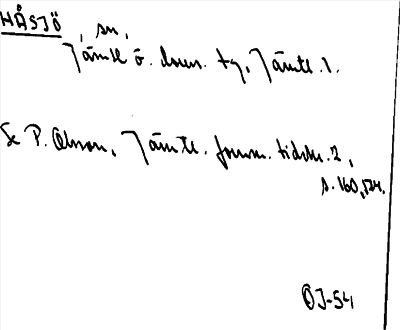 HÅSJÖ, sn,
Jämtl ö. doms. tg, Jämtl. l.
Se P. Olsson, Jämtl. fornm. tidskr. 2,
s. 160, 174.
OJ-54